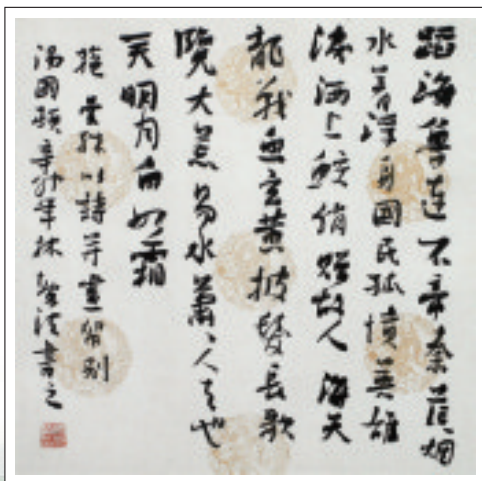 蹈海魯連不帝秦茫烟
水着浮身國民孤憤英雄
淚洒上鮫綃贈故人 海天
龍戰血玄黃披髮長歌
覽大荒易水蕭〻人去也
天明月白如霜
曼殊以詩并畫留别
湯國頓辛卯年林書之